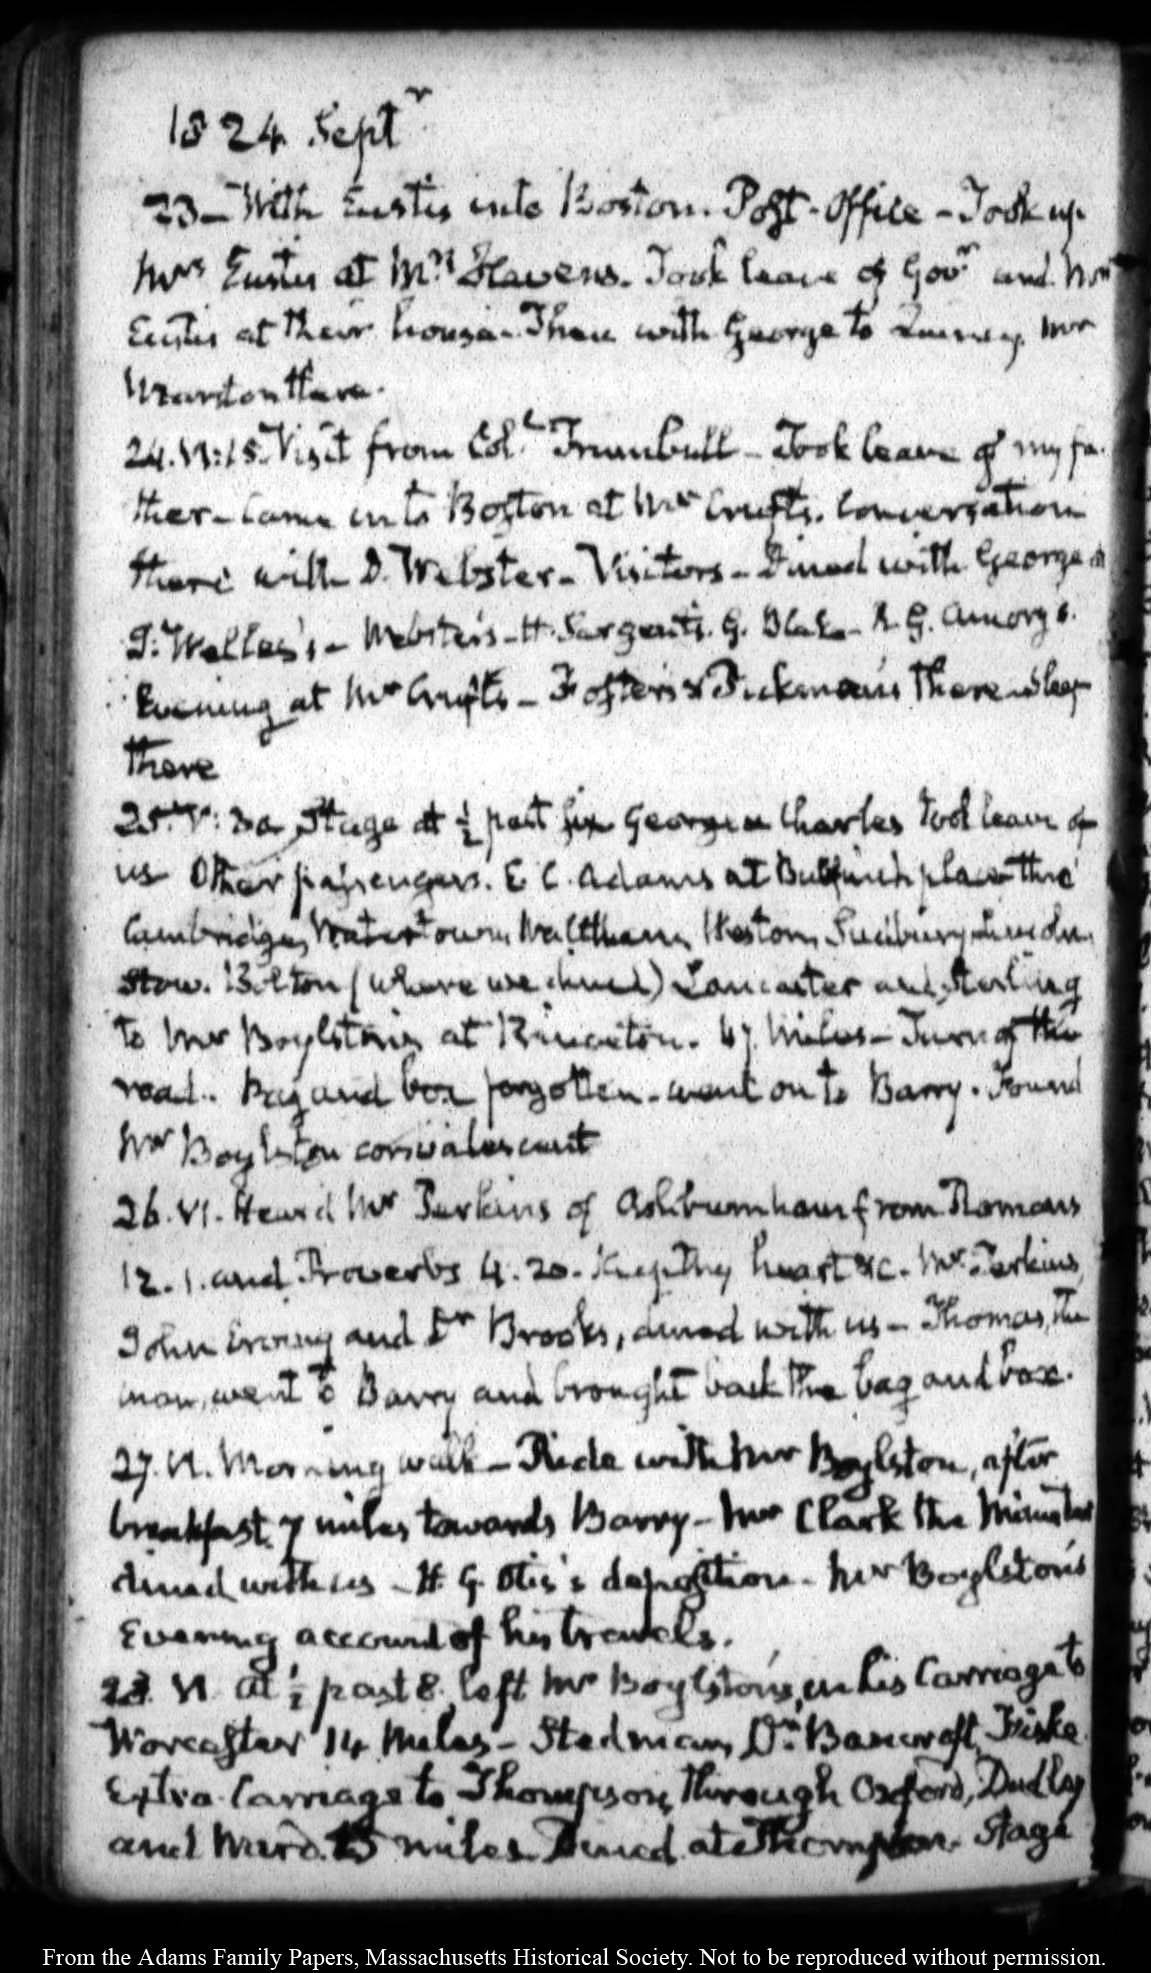 1824 Septr
23 — With Eustis into Boston. Post-Office — Took up
Mrs Eustis at Mrs Havens. Took leave of Govr and Mrs
Eustis at their house — Then with George to Quincy. Mr
Marston there.
24. VI:15. Visit from Coll. Trumbull — Took leave of my fa-
ther — Came into Boston at Mr Cruft's. Conversation
there with D. Webster — Visitors — Dined with George at
J. Welles's — Webster's — H. Sargent's. G. Blake — R. G. Amory's.
Evening at Mr Cruft's — Foster's & Dickman's there sleep
there
25. V:30 Stage at ½ past six George & Charles took leave of
us Other passengers. E. C. Adams at Bulfinch place thro'
Cambridge, Watertown, Waltham, Weston, Sudbury
Stow. Bolton (where we dined) Lancaster and Sterling
to Mr Boylston's at Princeton. 47 Miles — Turn of the
road. Bag and box forgotten — went on to Barry. Found
Mr Boylston convalescent
26. VI. Heard Mr Perkins of Ashburnham from Romans
12. 1. and Proverbs 4. 20. Keep thy heart &c. Mr Perkins,
John Erving and Dr Brooks, dined with us — Thomas, the
man, went to Barry and brought back the bag and box.
27. VI. Morning walk — Ride with Mr Boylston, after
breakfast, 7 miles towards Barry — Mr Clark the Minister
dined with us — H. G. Otis's deposition — Mr Boylston's
Evening account of his travels.
28. VI. At ½ past 8. left Mr Boylston's, in his Carriage to
Worcester 14 Miles — Stedman, Dr Bancroft, Fiske
Extra Carriage to Thompson, through Oxford, Dudley
and miles Dined at Thompson. Stage
From the Adams Family Papers, Massachusetts Historical Society. Not to be reproduced without permission.